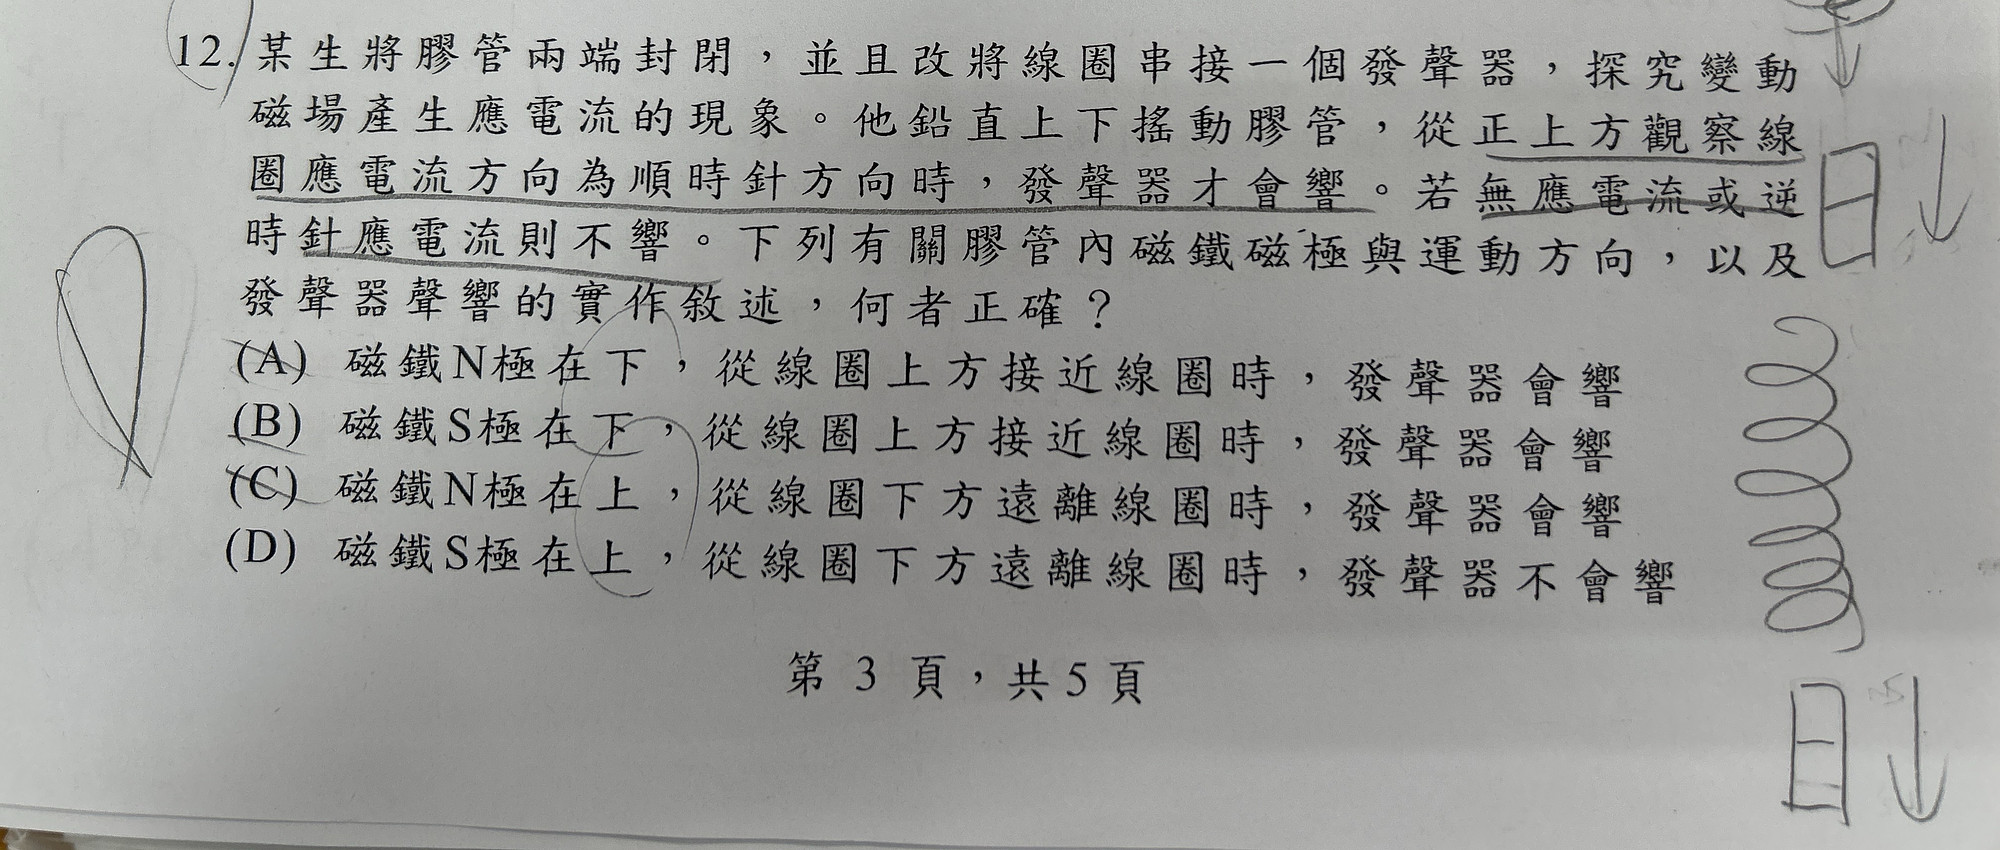 12. 某生將膠管兩端封閉，並且改將線圈串接一個發聲器，探究變動
磁場產生應電流的現象。他鉛直上下搖動膠管，從正上方觀察線
圈應電流方向為順時針方向時，發聲器才會響。若無應電流或逆
時針應電流則不響。下列有關膠管內磁鐵磁極與運動方向，以及
發聲器聲響的實作敘述，何者正確？
(A) 磁鐵N極在下，從線圈上方接近線圈時，發聲器會響
(B) 磁鐵S極在下，從線圈上方接近線圈時，發聲器會響
(C) 磁鐵N極在上，從線圈下方遠離線圈時，發聲器會響
(D) 磁鐵S極在上，從線圈下方遠離線圈時，發聲器不會響
第 3 頁，共5頁